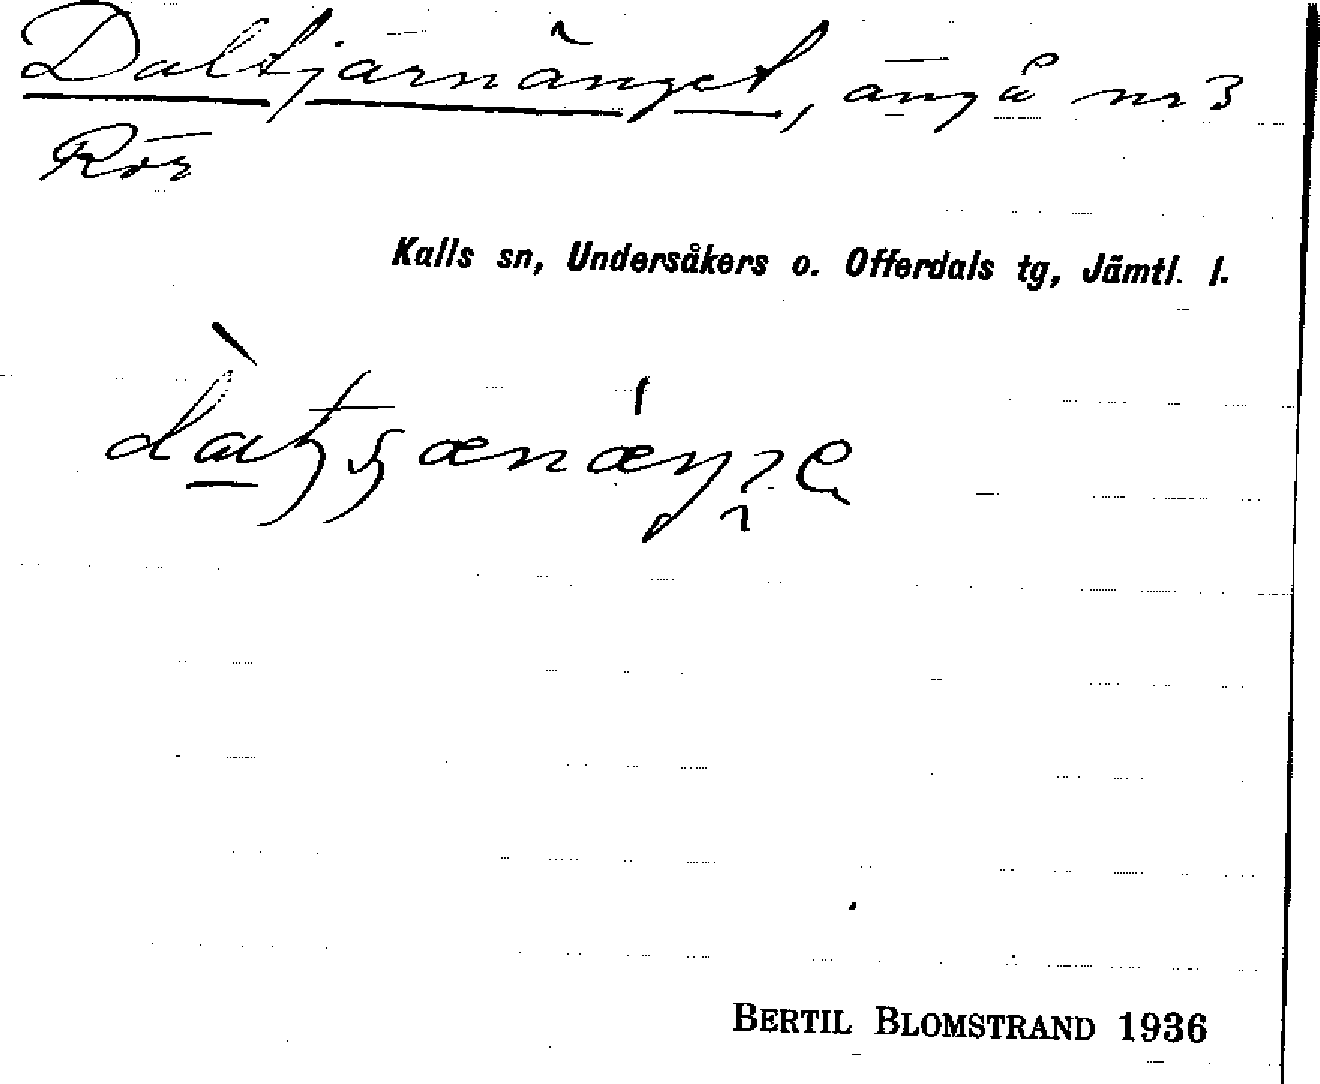 Daltjärnänget, äng å nr 3
Rör
Kalls sn, Undersåkers o. Offerdals tg, Jämtl. l.
BERTIL BLOMSTRAND 1936